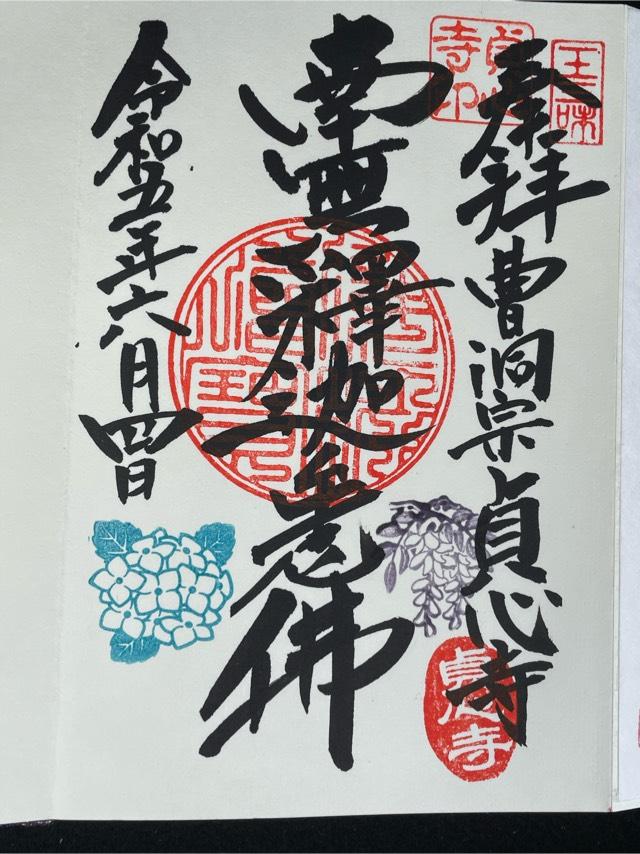 奉拝 曹洞宗 貞心寺
南無釋迦牟尼佛
令和五年六月四日
貞心寺印
貞心寺